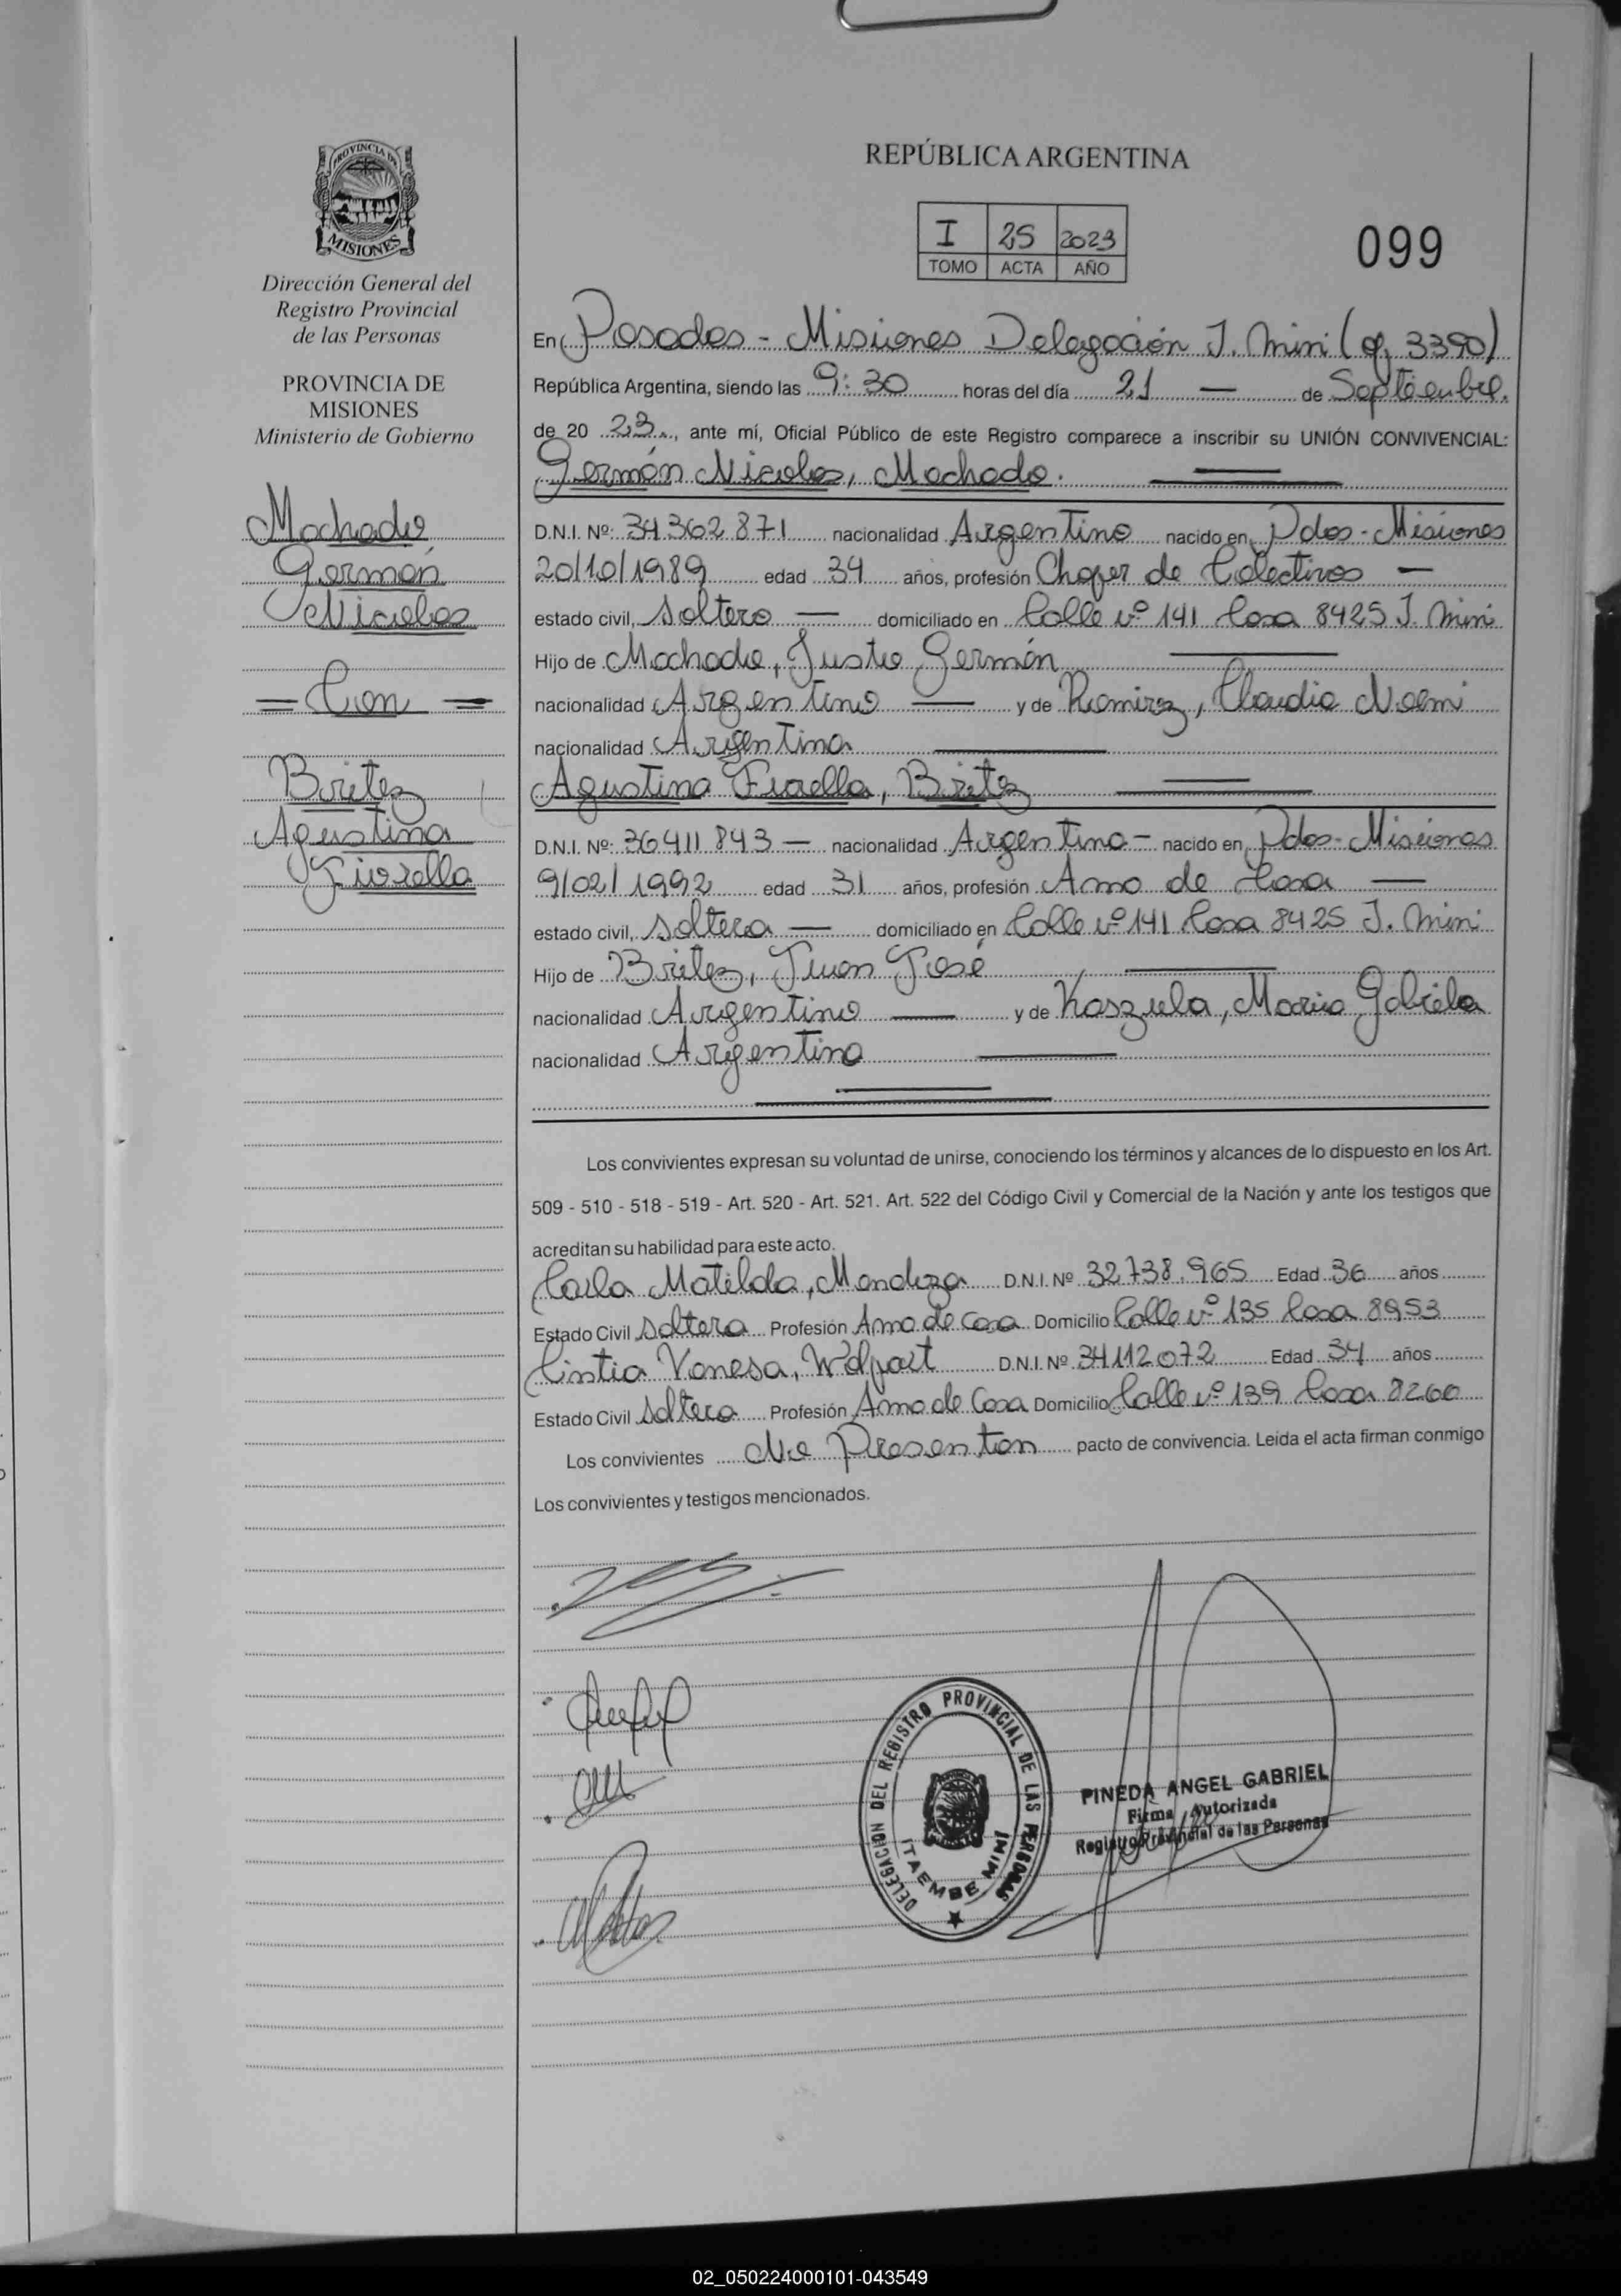 PROVINCIA DE
MISIONES
Dirección General del
Registro Provincial
de las Personas
PROVINCIA DE
MISIONES
Ministerio de Gobierno
Machado
Germán
Nicolas
= Con =
Britez
Agustina
Fiorella
REPÚBLICA ARGENTINA
I 25 2023
TOMO ACTA AÑO
099
En Posadas - Misiones Delegación I. Mini (of 3390)
República Argentina, siendo las 9:30 horas del día 21 — de Septiembre.
de 20 23, ante mí, Oficial Público de este Registro comparece a inscribir su UNIÓN CONVIVENCIAL:
Germán Nicolas, Machado.
D.N.I. Nº: 34.362.871 nacionalidad Argentino nacido en Pdas - Misiones
20/10/1989 edad 34 años, profesión Chofer de Colectivos —
estado civil, Soltero — domiciliado en Calle nº 141 Casa 8425 I. Mini
Hijo de Machado, Justo Germán
nacionalidad Argentino — y de Ramirez, Claudia Noemi
nacionalidad Argentina
Agustina Fiorella, Britez
D.N.I. Nº: 36411843 — nacionalidad Argentina — nacido en Pdas - Misiones
9/02/1992 edad 31 años, profesión Ama de Casa —
estado civil, Soltera — domiciliado en Calle nº 141 Casa 8425 I. Mini
Hijo de Britez, Juan José
nacionalidad Argentino — y de Kaszuela, Maria Gabriela
nacionalidad Argentina
Los convivientes expresan su voluntad de unirse, conociendo los términos y alcances de lo dispuesto en los Art.
509 - 510 - 518 - 519 - Art. 520 - Art. 521. Art. 522 del Código Civil y Comercial de la Nación y ante los testigos que
acreditan su habilidad para este acto.
Carla Matilda, Mendoza D.N.I. Nº 32.738.965 Edad 36 años
Estado Civil Soltera Profesión Ama de Casa Domicilio Calle nº 135 Casa 8953
Cintia Vanesa, D.N.I. Nº 34112072 Edad 34 años
Estado Civil Soltera Profesión Ama de Casa Domicilio Calle nº 139 Casa 8260
Los convivientes No Presentan pacto de convivencia. Leida el acta firman conmigo
Los convivientes y testigos mencionados.
DELEGACION DEL REGISTRO PROVINCIAL DE LAS PERSONAS
ITAEMBE MINI
PINEDA ANGEL GABRIEL
Firma Autorizada
Registro Provincial de las Personas
02_050224000101-043549